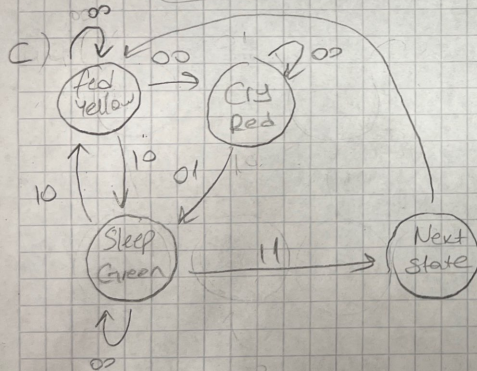 00
C)
00
00
Fed
Yellow
Cry
Red
10
01
10
Sleep
Green
11
Next
State
00